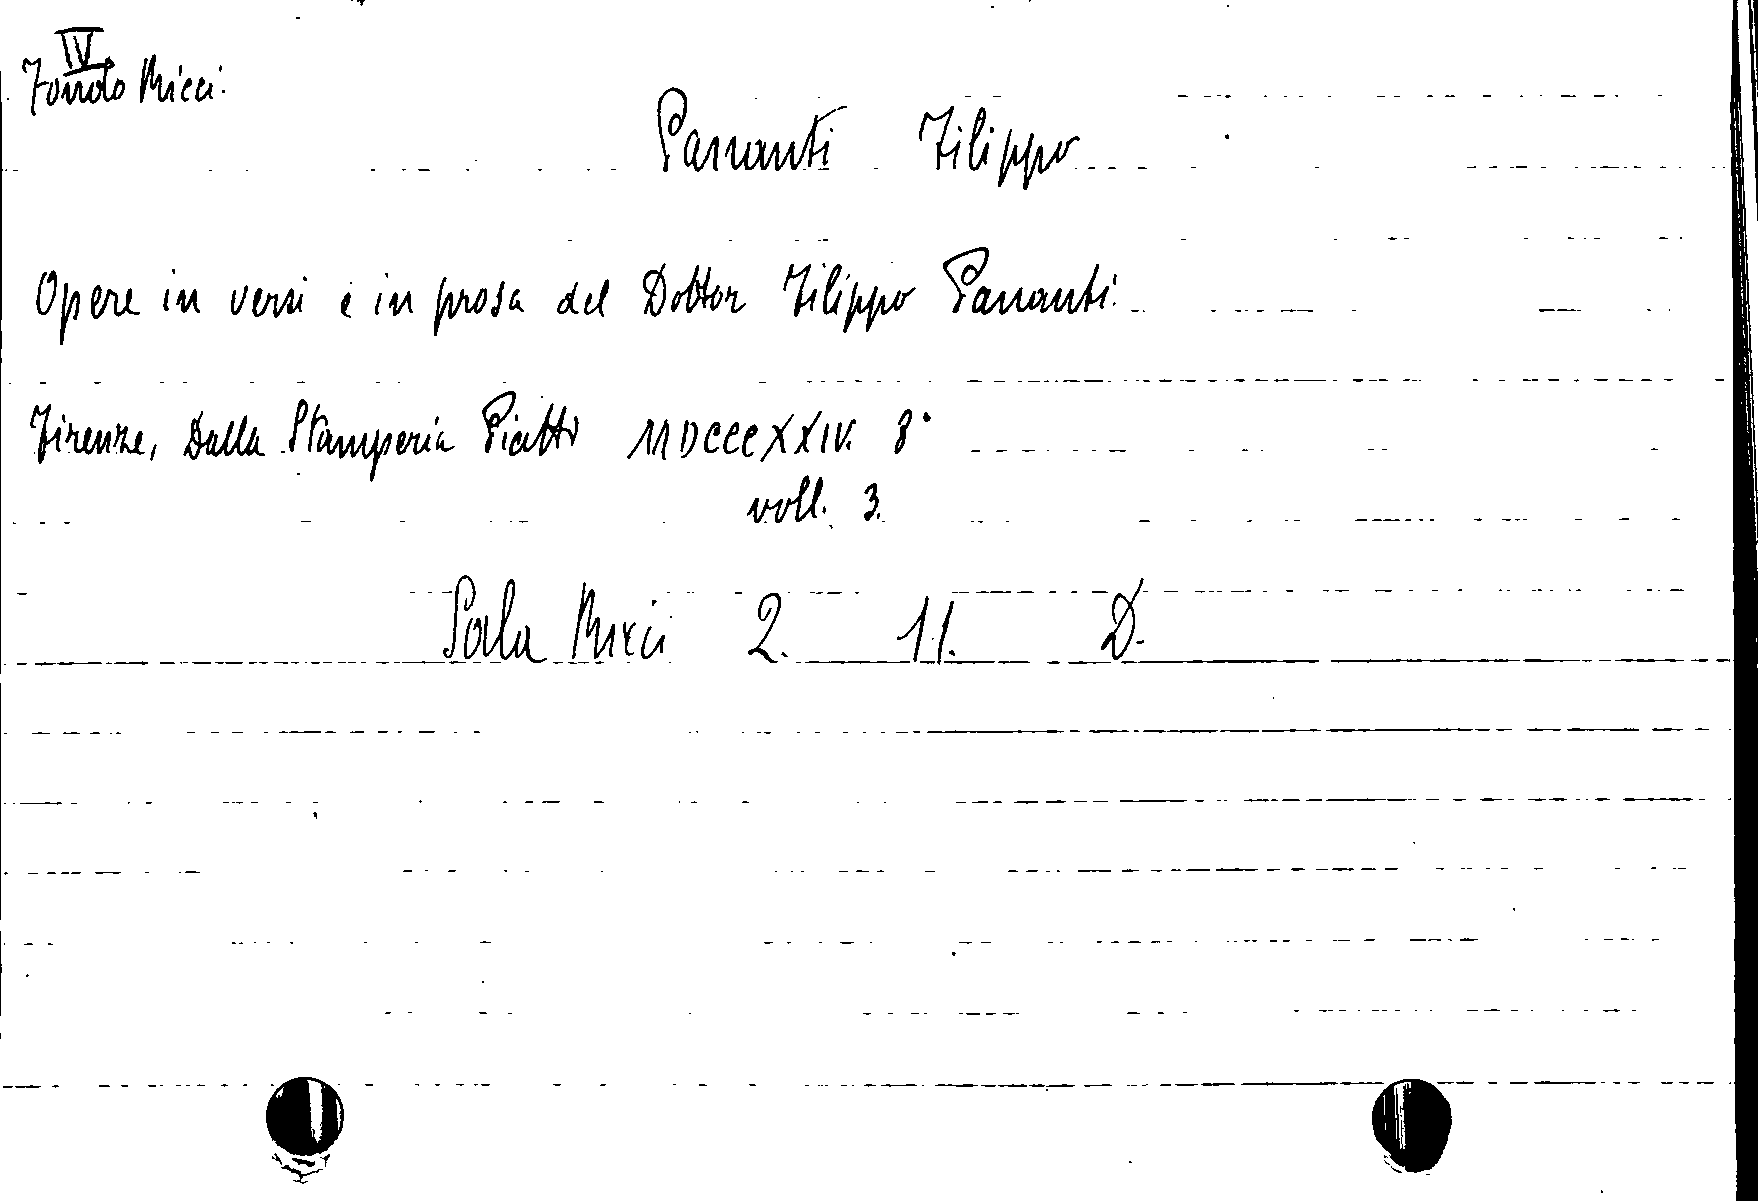 IV
Fondo Ricci.
Pananti Filippo
Opere in versi e in prosa del Dottor Filippo Pananti.
Firenze, Dalla Stamperia Piatti MDCCCXXIV. 8°
voll. 3.
Sala Ricci 2. 11. D.